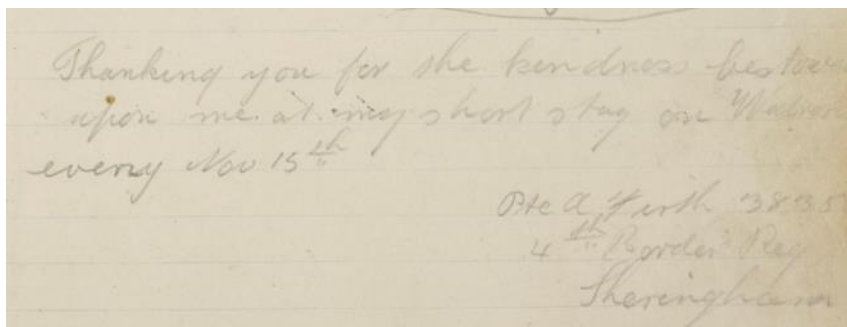 Thanking you for the kindness bestow
upon me at my short stay on
every Nov 15th
Pte A Firth 3835
4th Border Reg
Sheringham